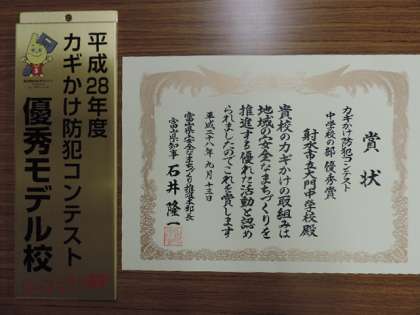 平成28年度
カギかけ防犯コンテスト
優秀モデル校
賞状
カギかけ防犯コンテスト
中学校の部 優秀賞
射水市立大門中学校殿
貴校のカギかけの取組みは
地域の安全なまちづくりを
推進する優れた活動と認め
られましたのでこれを賞します
平成二十八年九月十三日
富山県安全なまちづくり推進本部長
富山県知事 石井隆一